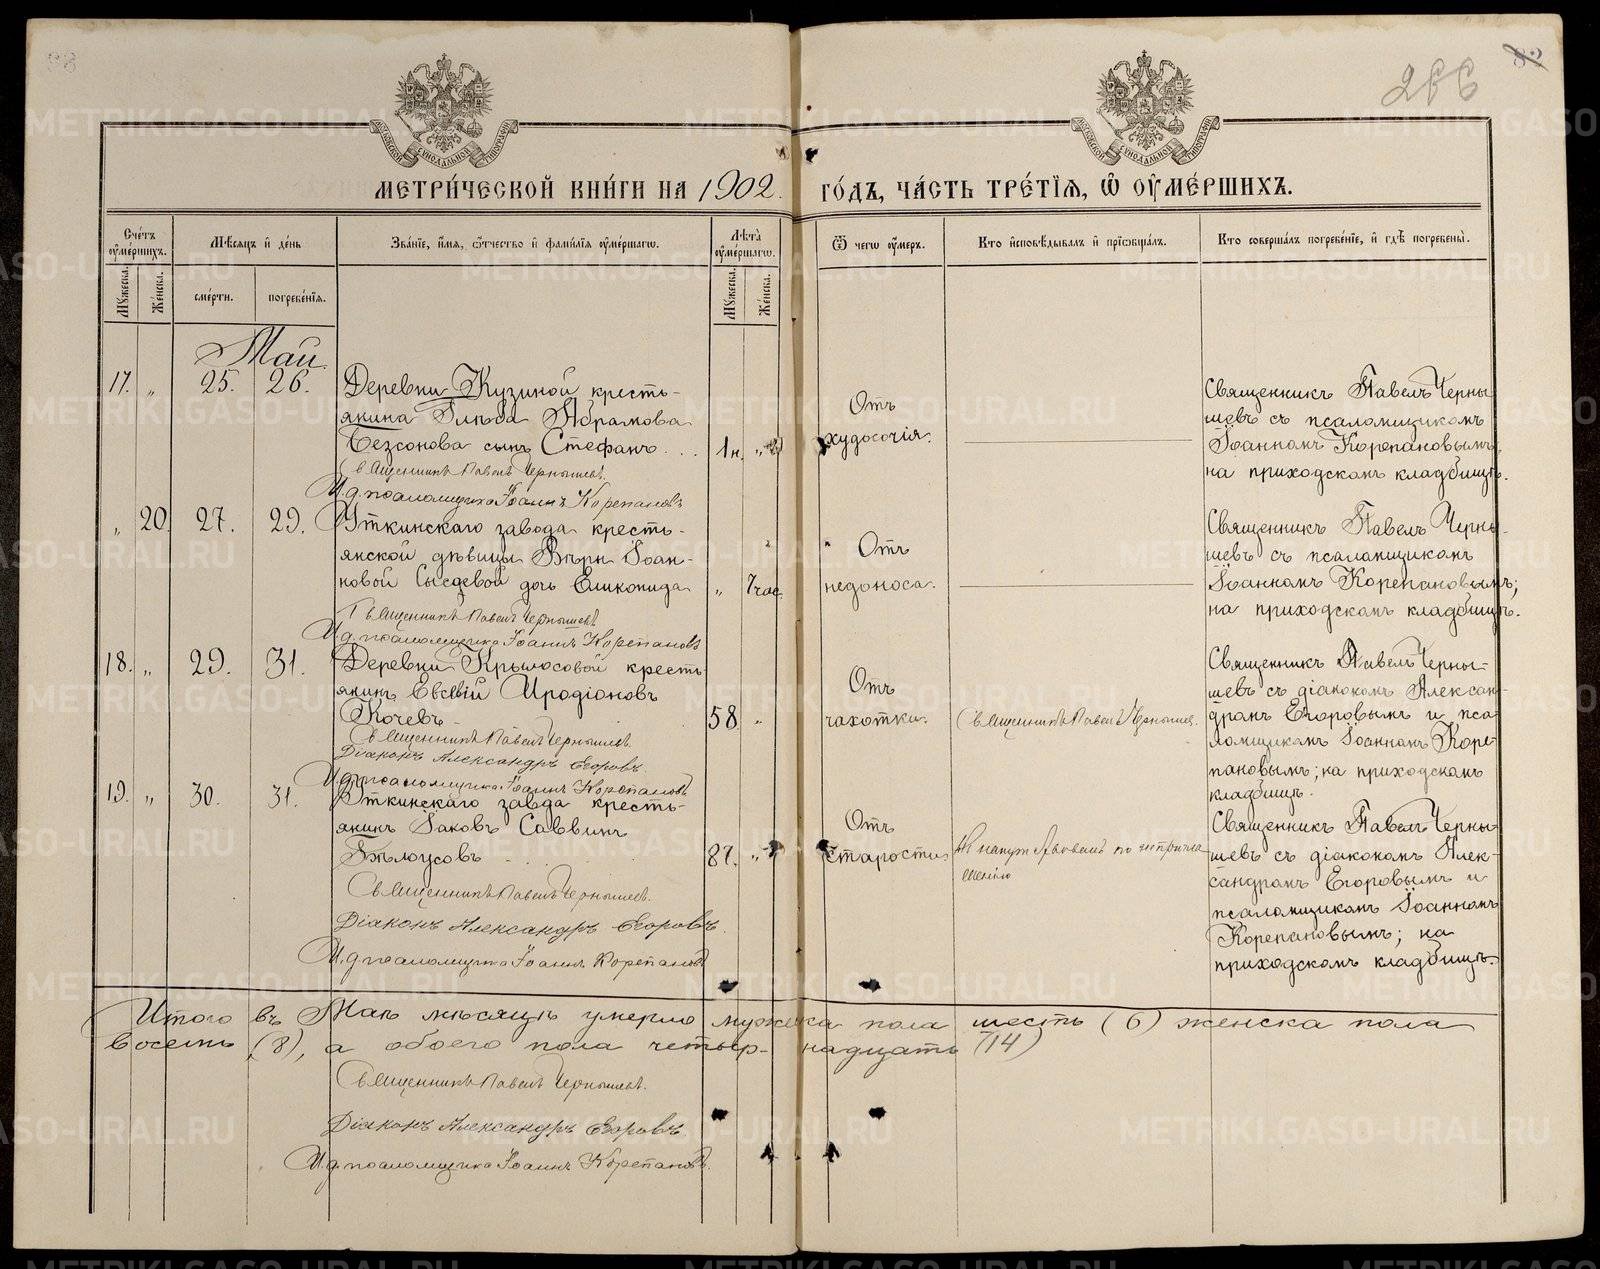 266
МЕТРИ́ЧЕСКОЙ КНИ́ГИ НА 1902 ГО́ДЪ, ЧА́СТЬ ТРЕ́ТІѦ, Ѡ҆ ОУ҆МЕ́РШИХЪ.
Сче́тъ оу҆ме́ршихъ.
Мѣ́сѧцъ и҆ де́нь
Зва́нїе, и҆́мѧ, ѻ҆́тчество и҆ фами́лїѧ оу҆ме́ршагѡ.
Лѣ́та оу҆ме́ршагѡ.
Ѿ чегѡ̀ оу҆́меръ.
Кто̀ и҆сповѣ́дывалъ и҆ прїѡбща́лъ.
Кто̀ соверша́лъ погребе́нїе, и҆ гдѣ̀ погребены̀.
Мꙋ́жеска.
Же́нска.
сме́рти.
погребе́нїѧ.
Мꙋ́жеска.
Же́нска.
Май
17. „ 25. 26. Деревни Кузиной кресть-
янина Глѣба Абрамова
Безсонова сынъ Стефанъ . . . 1 н. „
Священникъ Павелъ Чернышевъ.
И. д. псаломщика Іоаннъ Корепановъ
Отъ
худосочія.
Священникъ Павелъ Черны-
шевъ съ псаломщикомъ
Іоанномъ Корепановымъ,
на приходскомъ кладбищѣ.
„ 20. 27. 29. Уткинскаго завода кресть-
янской дѣвицы Вѣры Іоан-
новой Сысоевой дочь Еликонида „ 7 час.
Священникъ Павелъ Чернышевъ
И. д. псаломщика Іоаннъ Корепановъ
Отъ
недоноса.
Священникъ Павелъ Черны-
шевъ съ псаломщикомъ
Іоанномъ Корепановымъ;
на приходскомъ кладбищѣ.
18. „ 29. 31. Деревни Крылосовой кресть-
янинъ Евсевій Иродіоновъ
Кочевъ 58 „
Священникъ Павелъ Чернышевъ.
Діаконъ Александръ Егоровъ.
И. д. псаломщика Іоаннъ Корепановъ
Отъ
чахотки.
Священникъ Павелъ Чернышев.
Священникъ Павелъ Черны-
шевъ съ діакономъ Алексан-
дромъ Егоровымъ и пса-
ломщикомъ Іоанномъ Коре-
пановымъ; на приходскомъ
кладбищѣ.
19. „ 30. 31. Уткинскаго завода кресть-
янинъ Іаковъ Саввинъ
Бѣлоусовъ 87. „
Священникъ Павелъ Чернышевъ.
Діаконъ Александръ Егоровъ.
И. д. псаломщика Іоаннъ Корепановъ
Отъ
старости.
Священникъ Павелъ Черны-
шевъ съ діакономъ Алек-
сандромъ Егоровымъ и
псаломщикомъ Іоанномъ
Корепановымъ; на
приходскомъ кладбищѣ.
Итого въ Маѣ мѣсяцѣ умерло мужска пола шесть (6) женска пола
восемь (8), а обоего пола четыр- надцать (14)
Священникъ Павелъ Чернышевъ.
Діаконъ Александръ Егоровъ.
И. д. псаломщика Іоаннъ Корепановъ.
METRIKI.GASO-URAL.RU